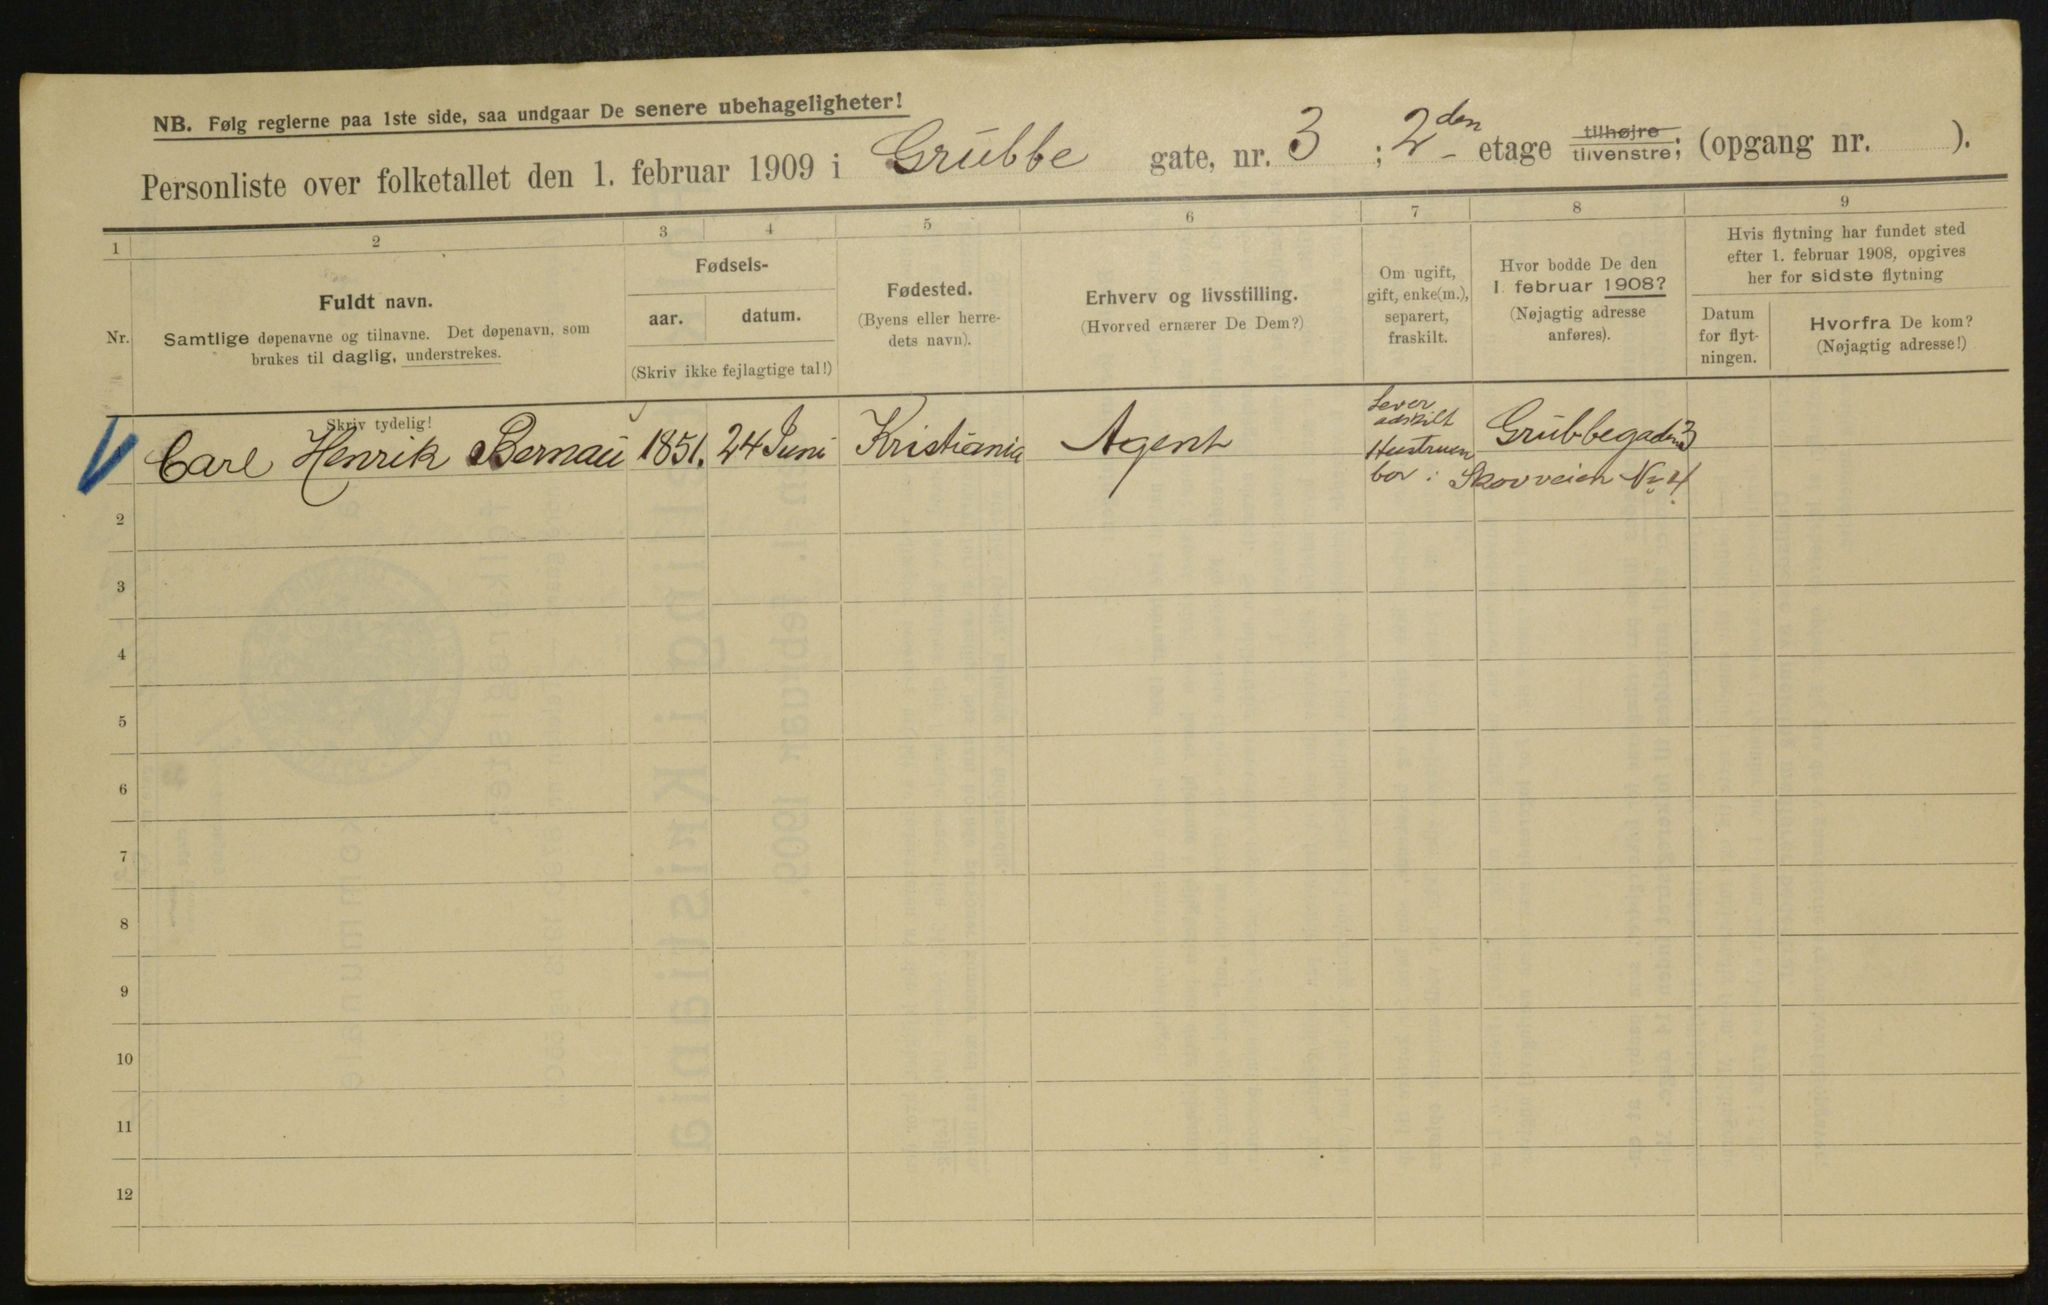 NB. Følg reglerne paa 1ste side, saa undgaar De senere ubehageligheter!
Personliste over folketallet den 1. februar 1909 i Grubbe gate, nr. 3 ; 2den etage tilhøjre tilvenstre; (opgang nr. ).
1 2 3 4 5 6 7 8 9
Nr.
Fuldt navn.
Samtlige døpenavne og tilnavne. Det døpenavn, som
brukes til daglig, understrekes.
Skriv tydelig!
Fødsels-
aar. datum.
(Skriv ikke fejlagtige tal!)
Fødested.
(Byens eller herre-
dets navn).
Erhverv og livsstilling.
(Hvorved ernærer De Dem?)
Om ugift,
gift, enke(m.),
separert,
fraskilt.
Hvor bodde De den
1. februar 1908?
(Nøjagtig adresse
anføres).
Hvis flytning har fundet sted
efter 1. februar 1908, opgives
her for sidste flytning
Datum
for flyt-
ningen.
Hvorfra De kom?
(Nøjagtig adresse!)
Carl Henrik Bernau 1851. 24 Juni Kristiania Agent
Lever
adskilt
Hustruen
bor : Skovveien No 4
Grubbegaden 3
2
3
4
5
6
7
8
9
10
11
12